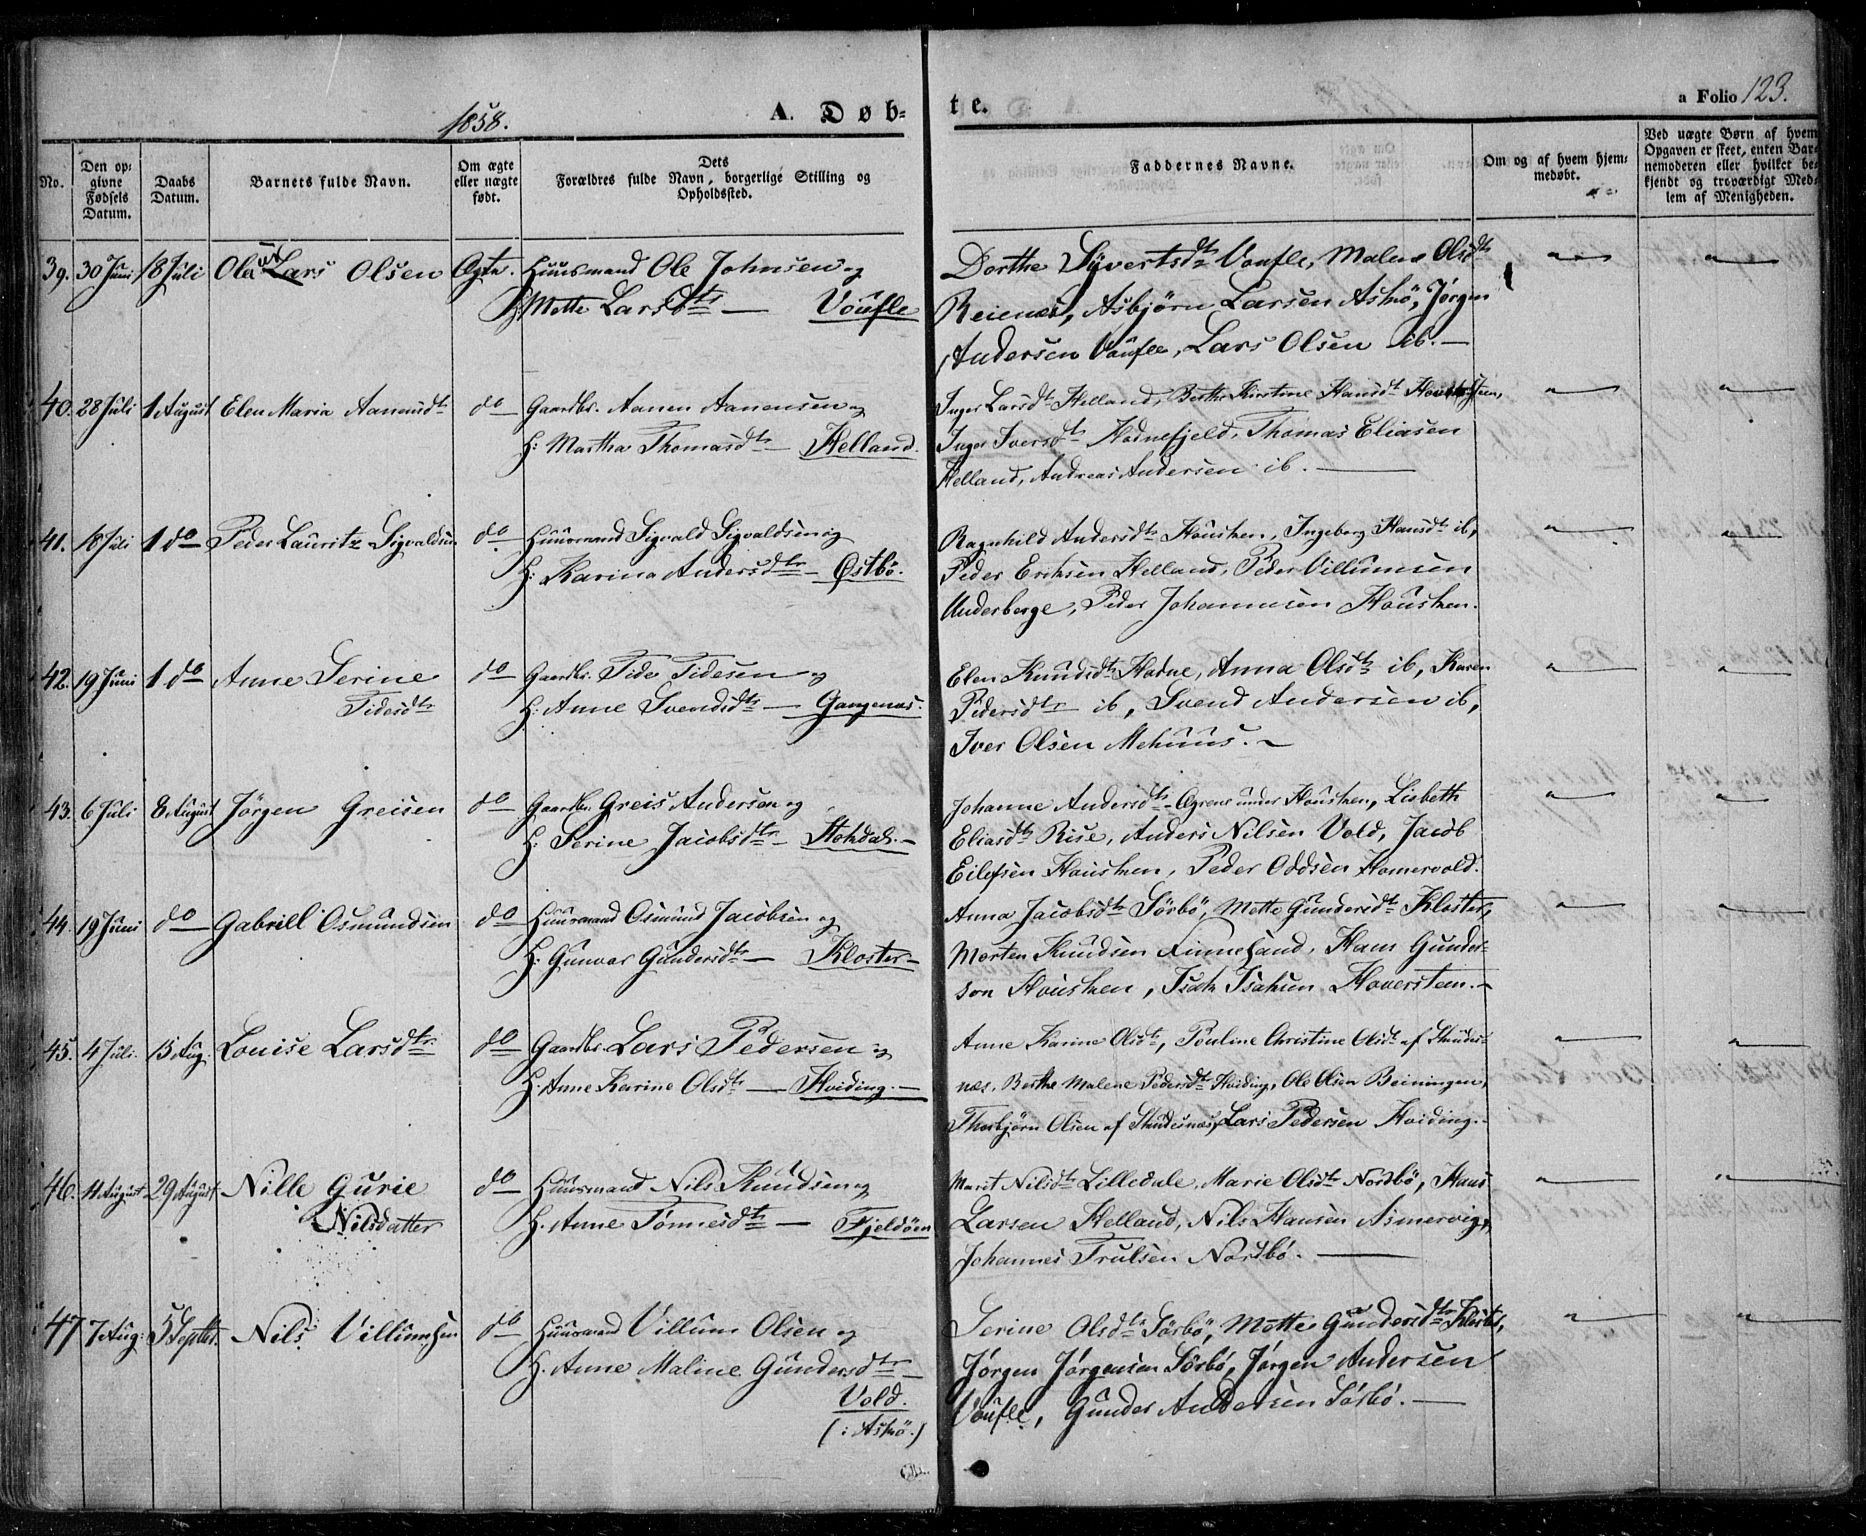 1858.
A. Døb-
te.
a Folio 123.
No.
Den op-
givne
Fødsels
Datum.
Daabs
Datum.
Barnets fulde Navn.
Om ægte
eller uægte
født.
Dets
Forældres fulde Navn, borgerlige Stilling og
Opholdssted.
Faddernes Navne.
Om og af hvem hjem-
medøbt.
Ved uægte Børn af hvem
Opgaven er skeet, enten Bar-
nemoderen eller hvilket be-
kjendt og troværdigt Med-
lem af Menigheden.
39. 30 Juni 18 Juli Ole Lars Olsen Ægte. Huusmand Ole Johnsen og
H: Mette Larsdtr — Voufle
Dorthe Syvertsdtr Voufle, Malene Olsdtr
Reienes, Asbjørn Larsen Askø, Jørgen
Andersen Voufle, Lars Olsen ib. —
40. 28 Juli 1 August Elen Maria Aanensdtr do — Gaardbr. Aanen Aanensen og
H: Martha Thomasdtr — Helland.
Inger Larsdtr Helland, Berthe Kirstine Hansdtr
Inger Iversdtr Hodnefjeld, Thomas Eliasen
Helland, Andreas Andersen ib. —
41. 18 Juli 1 do Peder Lauritz Sigvaldsen do — Huusmand Sigvald Sigvaldsen og
H: Karina Andersdtr — Østbø.
Ragnhild Andersdtr Housken, Ingeborg Hansdtr ib,
Peder Eriksen Helland, Peder Villumsen
Underberge, Peder Johannesen Housken.
42. 19 Juni 1 do Anne Serine do — Gaardbr. Tide Tidesen og
Tidesdtr
H: Anne Svendsdtr — Gangenæs.
Elen Knudsdtr Hodne, Anna Olsdtr ib, Karen
Pedersdtr ib, Svend Andersen ib,
Iver Olsen Mehuus. —
43. 6 Juli 8 August Jörgen Greisen do — Gaardbr. Greis Andersen og
H: Serine Jacobsdtr — Stokdal. —
Johanne Andersdtr Ögrene under Housken, Lisbeth
Eliasdtr Rise, Anders Nilsen Vold, Jacob
Eilefsen Housken, Peder Oddsen Hamervold.
44. 19 Juni do — Gabriell Osmundsen do — Huusmand Osmund Jacobsen og
H: Gunvor Gundersdtr — Kloster —
Anna Jacobsdtr Sörbö, Mette Gundersdtr Kloster,
Morten Knudsen Finnesand, Hans Gunder-
son Housken, Isak Isaksen Haverstein. —
45. 4 Juli. 15 Aug. Louise Larsdtr do — Gaardbr. Lars Pedersen og
H. Anne Karine Olsdtr — Hviding. —
Anne Karine Olsdtr, Pouline Christine Olsdtr af Skudes-
næs, Berthe Malene Pedersdtr Hviding, Ole Olsen Beiningen,
Thorbjørn Olsen af Skudesnæs, Lars Pedersen Hviding. —
46. 11 August 29 August Nille Gurie do — Huusmand Nils Knudsen og
Nilsdatter
H. Anne Tønnesdtr — Fjeldöen
Marit Nilsdtr Lilledale, Marie Olsdtr Nordbø, Hans
Larsen Helland, Nils Hansen Asmervig,
Johannes Trulsen Nordbø. —
47 7 Aug: 5 Septbr. Nils Villumsen do — Huusmand Villum Olsen og
H. Anne Maline Gundersdtr —
Vold.
(: Askø.)
Serine Olsdtr Sörbö, Mette Gundersdtr Kloster,
Jørgen Jørgensen Sörbö, Jørgen Andersen
Voufle, Gunder Andersen Sörbö. —